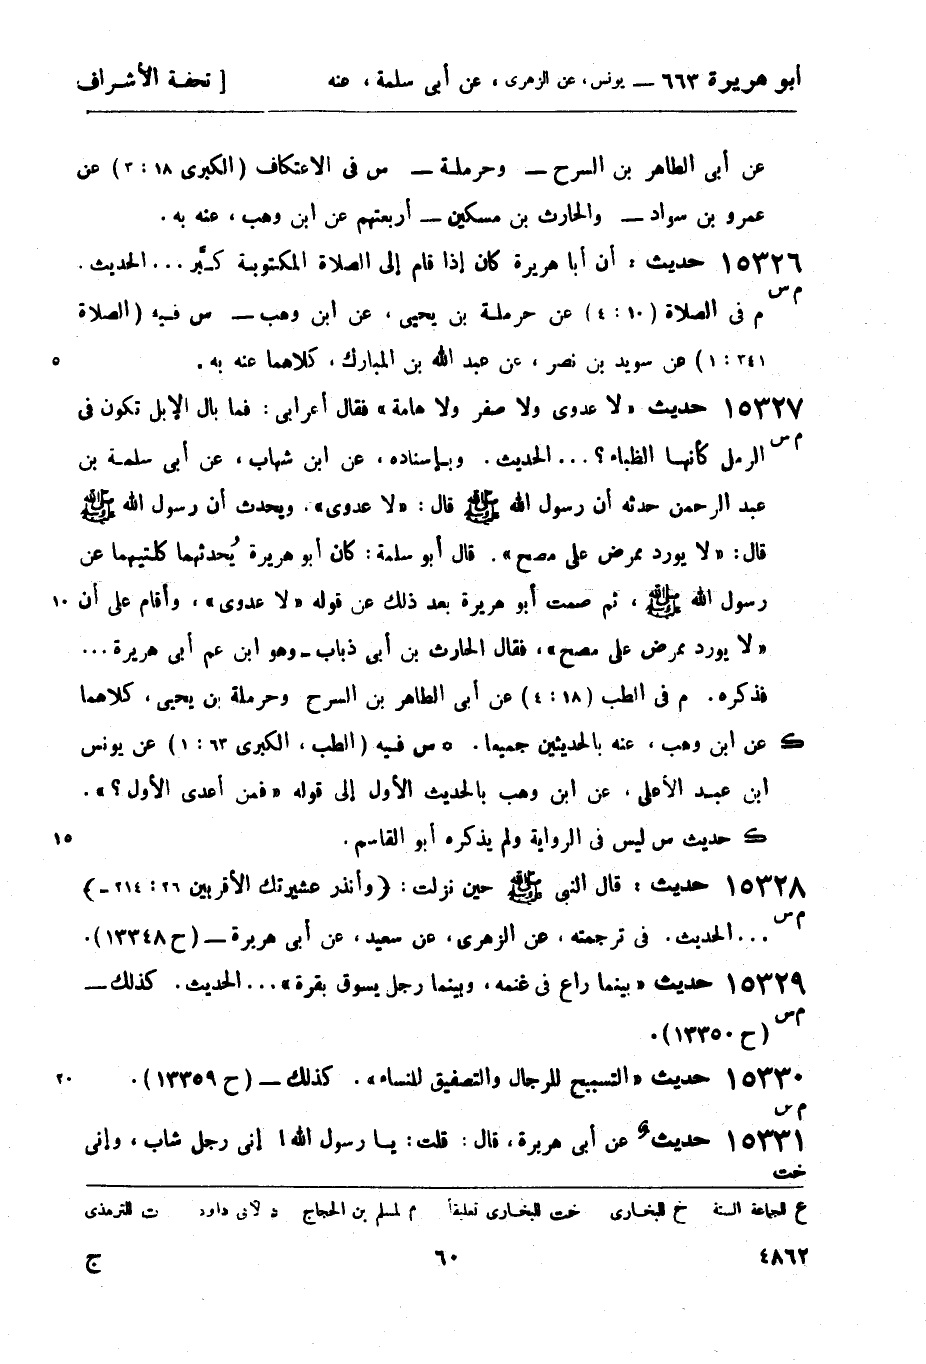 أبو هريرة ٦٦٣ — يونس، عن الزهرى، عن أبى سلمة، عنه [ تحفة الأشراف
عن أبى الطاهر بن السرح — وحرملة — س فى الاعتكاف (الكبرى ١٨ : ٣) عن
عمرو بن سواد — والحارث بن مسكين — أربعتهم عن ابن وهب، عنه به.
١٥٣٢٦ حديث : أن أبا هريرة كان إذا قام إلى الصلاة المكتوبة كبَّر ... الحديث.
م س
م فى الصلاة (١٠ : ٤) عن حرملة بن يحيى، عن ابن وهب — س فيه (الصلاة
٣٤١ : ١) عن سويد بن نصر، عن عبد الله بن المبارك، كلاهما عنه به. ٥
١٥٣٢٧ حديث «لا عدوى ولا صفر ولا هامة» فقال أعرابى : فما بال الإبل تكون فى
م س
الرمل كأنها الظباء؟ ... الحديث. وبإسناده، عن ابن شهاب، عن أبى سلمة بن
عبد الرحمن حدثه أن رسول الله ﷺ قال : «لا عدوى». ويحدث أن رسول الله ﷺ
قال : «لا يورد ممرض على مصح». قال أبو سلمة : كان أبو هريرة يُحدثهما كلتيهما عن
رسول الله ﷺ، ثم صمت أبو هريرة بعد ذلك عن قوله «لا عدوى»، وأقام على أن ١٠
«لا يورد ممرض على مصح»، فقال الحارث بن أبى ذباب - وهو ابن عم أبى هريرة ...
فذكره. م فى الطب (١٨ : ٤) عن أبى الطاهر بن السرح وحرملة بن يحيى، كلاهما
ك عن ابن وهب، عنه بالحديثين جميعا. ٥ س فيه (الطب، الكبرى ٦٣ : ١) عن يونس
ابن عبد الأعلى، عن ابن وهب بالحديث الأول إلى قوله «فمن أعدى الأول؟».
ك حديث س ليس فى الرواية ولم يذكره أبو القاسم. ١٥
١٥٣٢٨ حديث : قال النبى ﷺ حين نزلت : ﴿وأنذر عشيرتك الأقربين ٢٦ : ٢١٤ -﴾
م س
... الحديث. فى ترجمته، عن الزهرى، عن سعيد، عن أبى هريرة — (ح ١٣٣٤٨).
١٥٣٢٩ حديث «بينما راع فى غنمه، وبينما رجل يسوق بقرة» ... الحديث. كذلك —
م س
(ح ١٣٣٥٠).
١٥٣٣٠ حديث «التسبيح للرجال والتصفيق للنساء». كذلك — (ح ١٣٣٥٩). ٢٠
م س
١٥٣٣١ حديث عن أبى هريرة، قال : قلت : يا رسول الله! إنى رجل شاب، وإنى
خت
ع للجماعة الستة خ للبخارى خت للبخارى تعليقاً م لمسلم بن الحجاج د لأبى داود ت للترمذى
٤٨٦٢ ٦٠ ج